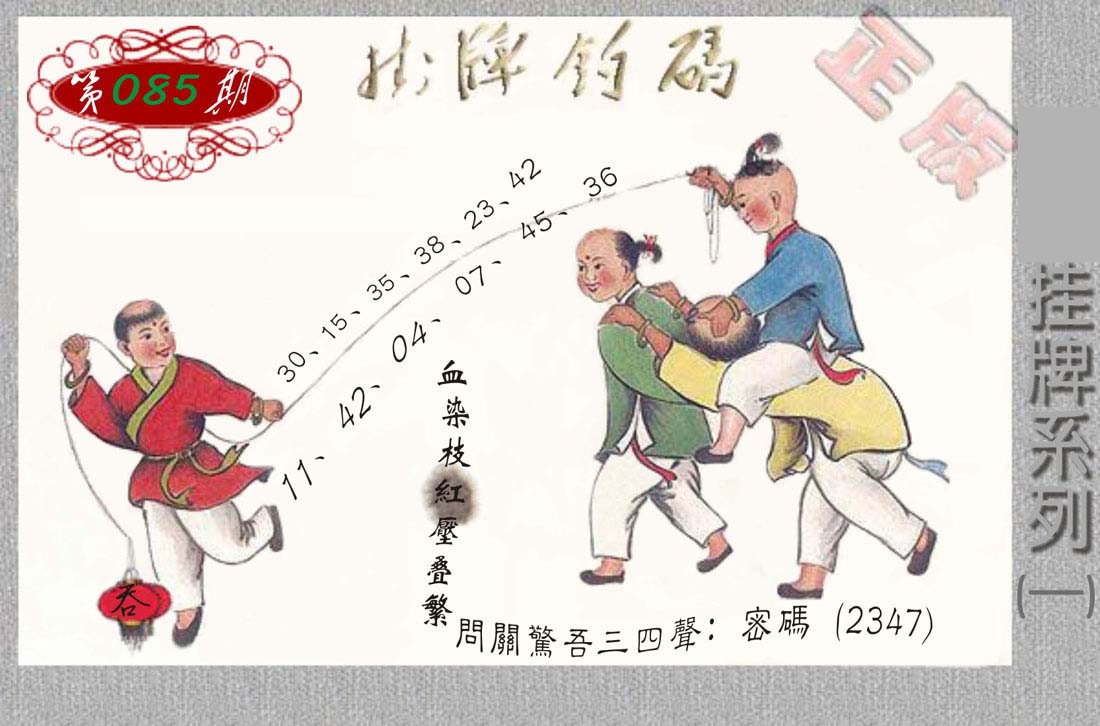 第085期
掛牌釣碼
正版
30、15、35、38、23、42
11、42、04、07、45、36
血染枝紅壓叠繁
吞
問關驚吾三四聲：密碼（2347）
挂牌系列(一)